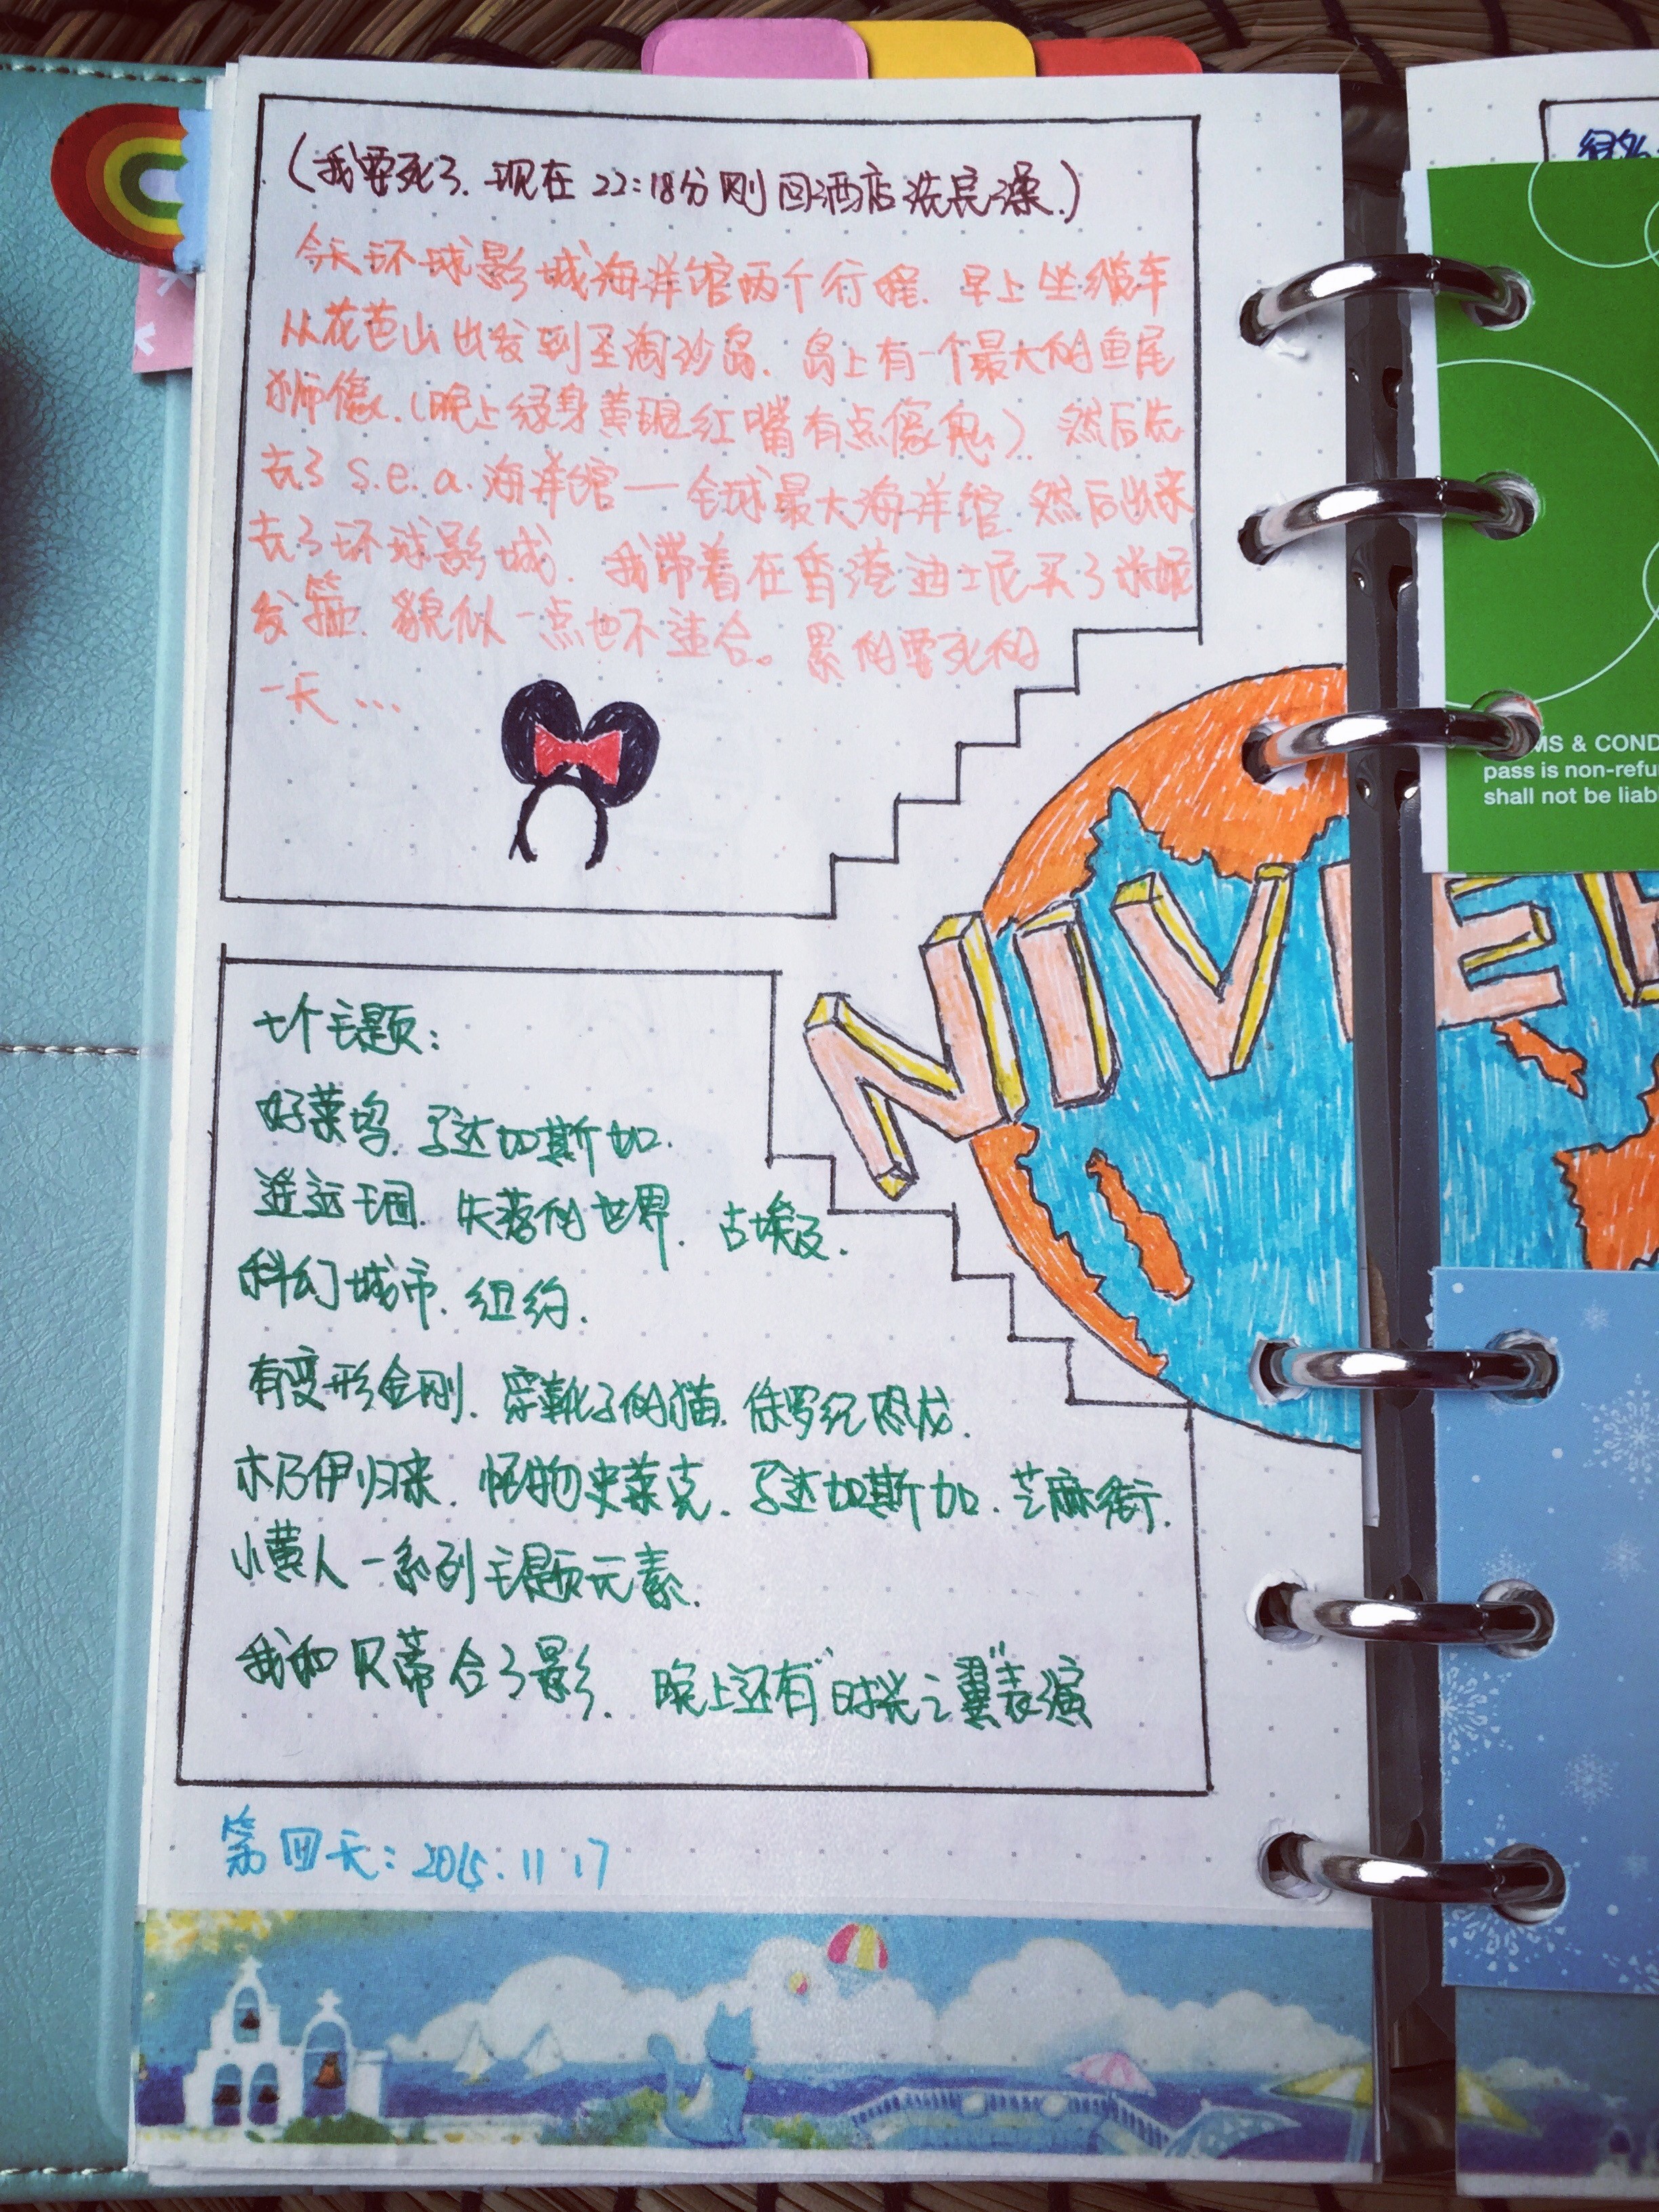 (我要死了.现在22:18分刚回酒店洗完澡.)
今天环球影城海洋馆两个行程.早上坐缆车
从花芭山出发到圣淘沙岛.岛上有一个最大的鱼尾
狮像.(晚上绿身黄眼红嘴有点像鬼).然后先
去了S.e.a.海洋馆—全球最大海洋馆.然后出来
去了环球影城.我带着在香港迪士尼买了米妮
发箍.貌似一点也不适合。累的要死的
一天...
七个主题:
好莱坞.马达加斯加.
遥远王国.失落的世界.古埃及.
科幻城市.纽约.
有变形金刚.穿靴子的猫.侏罗纪恐龙.
木乃伊归来.怪物史莱克.马达加斯加.芝麻街.
小黄人一系列主题元素.
我和贝蒂合了影.晚上还有"时光之翼"表演
第四天:2015.11.17
NIVE
MS & COND
pass is non-refu
shall not be liab